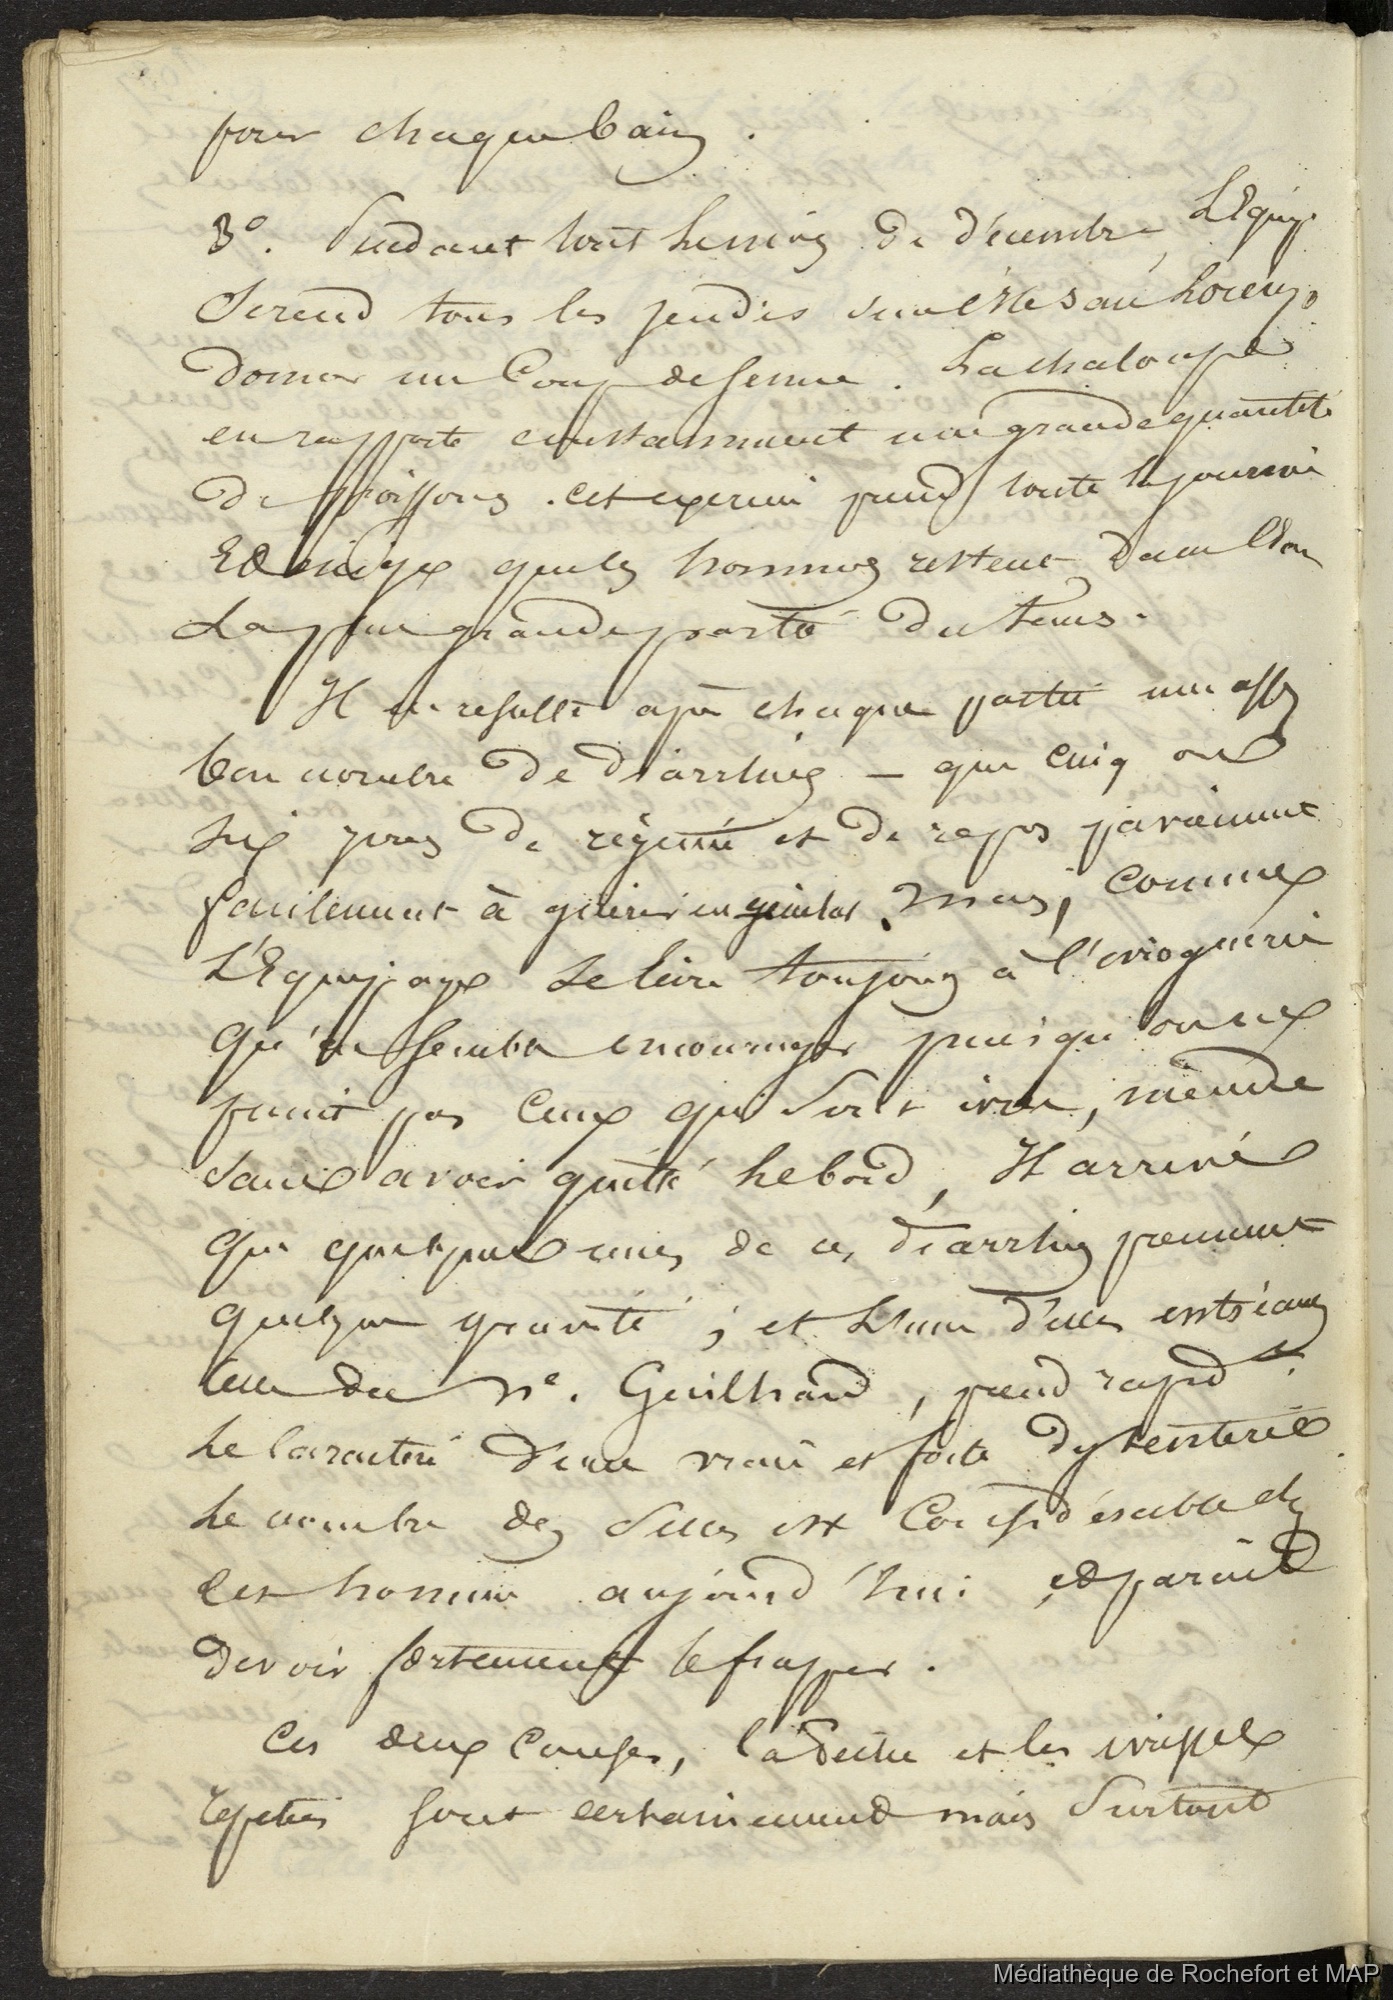 pour chaque bain.
3°. Pendant tout le mois de décembre, L'Equip.
se rend tous les jeudis sur l'île San Lorenzo
donner un Coup de senne. La chaloupe
en rapporte constamment une grande quantité
de poissons. cet exercice prend toute la journée
Et exige que les hommes restent dans l'Eau
La plus grande partie du tems.
Il en resulte après chaque partie un assez
bon nombre de diarrhées - que cinq ou
six jours de régime et de repos parviennent
facilement à guérir en général. Mais, comme
L'Equipage se livre toujours à l'ivrognerie
qu'on semble encourager puisqu'on ne
punit pas ceux qui sont ivres, même
sans avoir quitté le bord, Il arrive
que quelques unes de ces diarrhées prennent
quelque gravité ; et L'une d'elles entr'autres
celle du né. Guilhard, prend rapidt.
le caractère d'une vraie et forte dyssenterie
Le nombre des selles est Considérable chez
cet homme aujourd'hui, et parait
devoir fortement le frapper.
Ces deux causes, la Pêche et les ivresses
répétées sont certainement mais surtout
Médiathèque de Rochefort et MAP